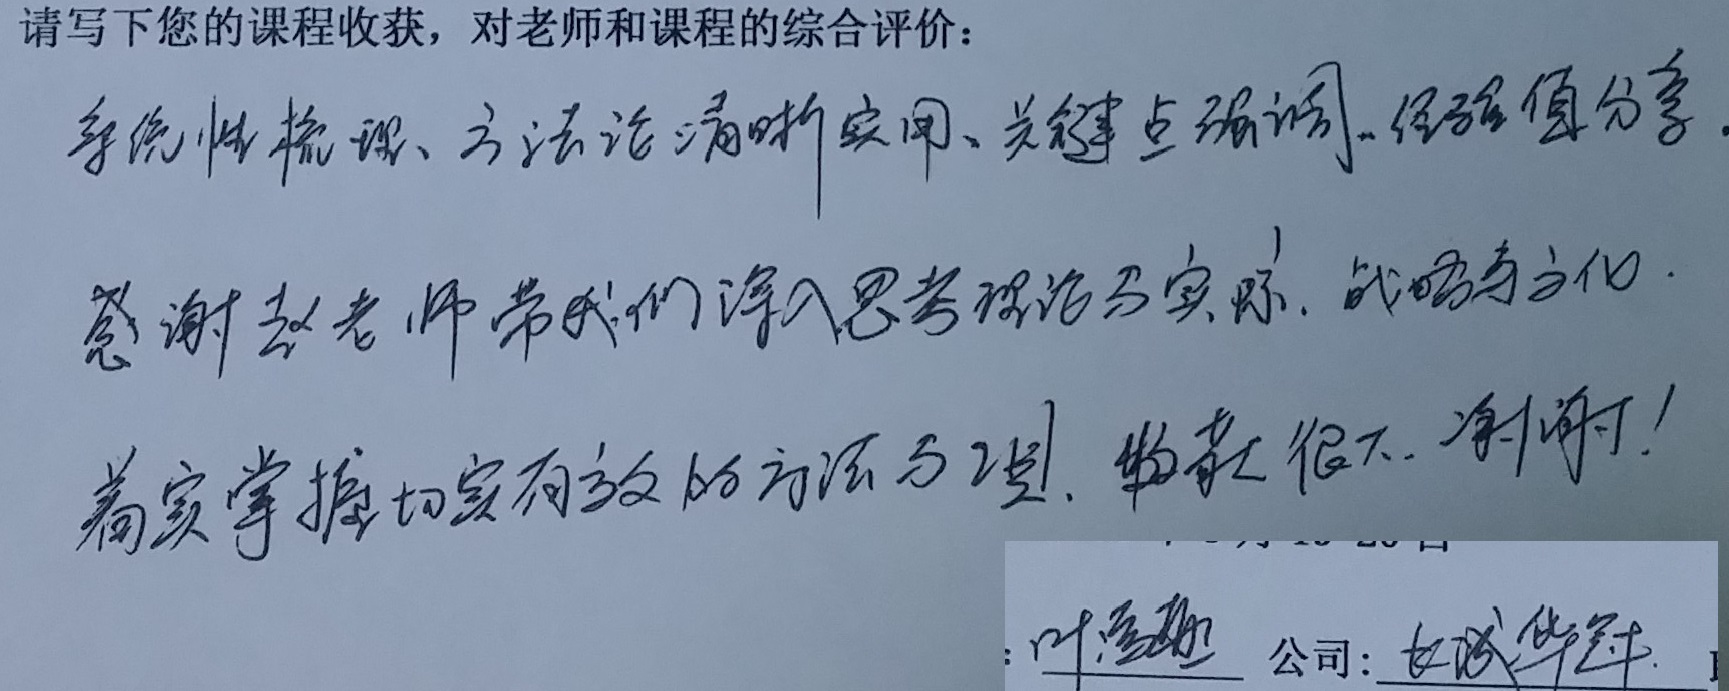 请写下您的课程收获，对老师和课程的综合评价：
系统性梳理、方法论清晰实用、关键点强调、经验值分享.
感谢赵老师带我们深入思考理论与实际、战略与文化.
着实掌握切实有效的方法与工具、收获很大.谢谢!
叶 公司: 长城华冠